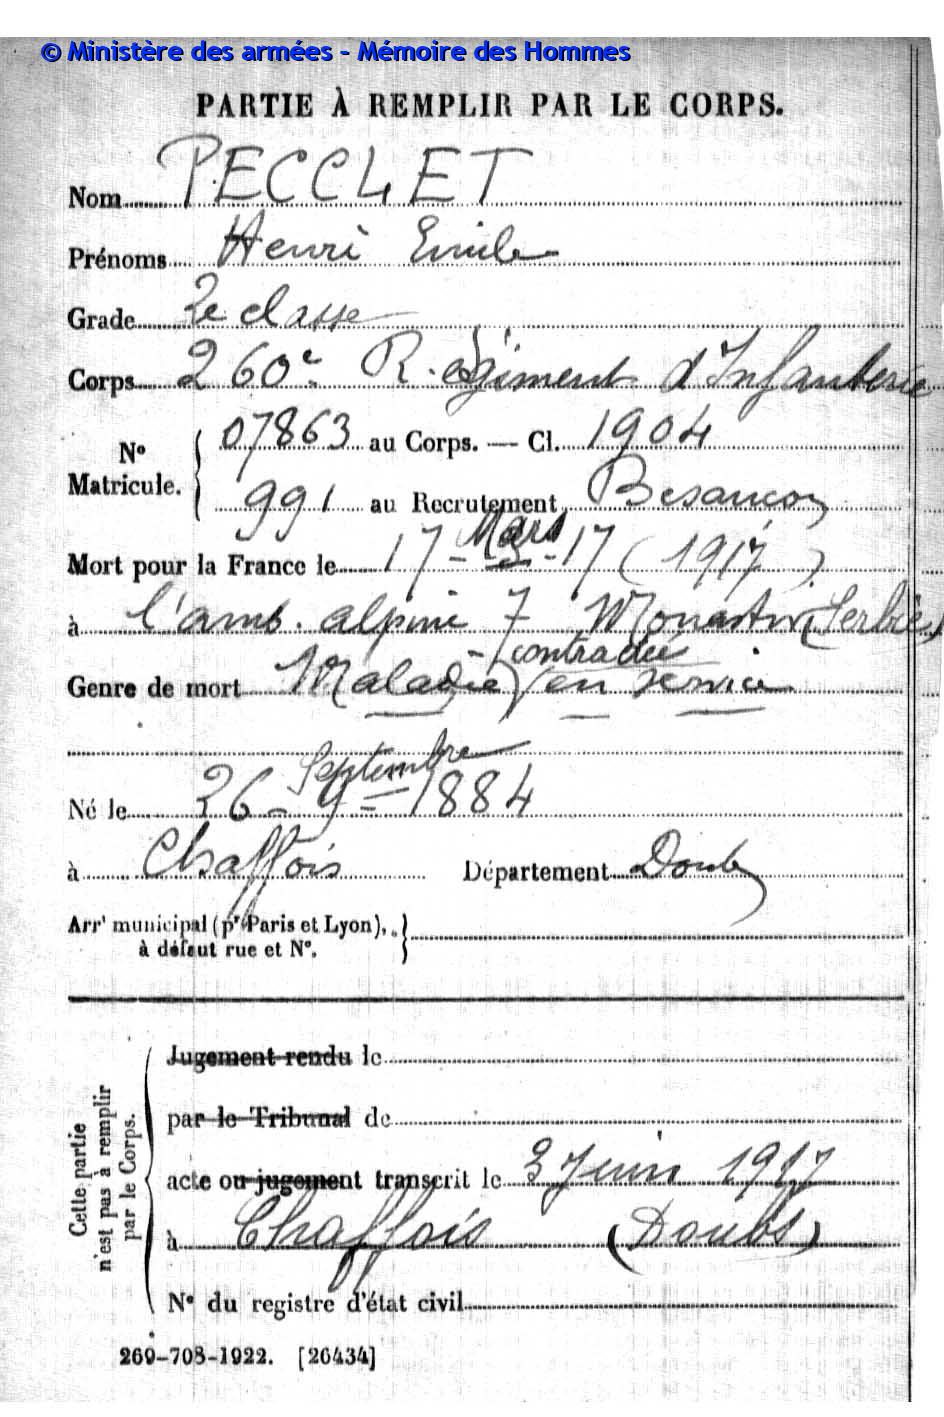 © Ministère des armées - Mémoire des Hommes
PARTIE À REMPLIR PAR LE CORPS.
Nom PECCLET
Prénoms Henri Emile
Grade 2e classe
Corps 260e Régiment d'Infanterie
No Matricule. { 07863 au Corps. — Cl. 1904
991 au Recrutement Besançon
Mort pour la France le 17 - Mars 3 - 17 (1917)
à l'amb. alpine 7 Monastir (Serbie)
contractée
Genre de mort Maladie en service
Septembre
Né le 26 - 9 = 1884
à Chaffois Département Doubs
Arrt municipal (pr Paris et Lyon),
à défaut rue et No.
Cette partie n'est pas à remplir par le Corps.
Jugement rendu le
par le Tribunal de
acte ou jugement transcrit le 3 Juin 1917
à Chaffois (Doubs)
No du registre d'état civil
269-708-1922. [26434]